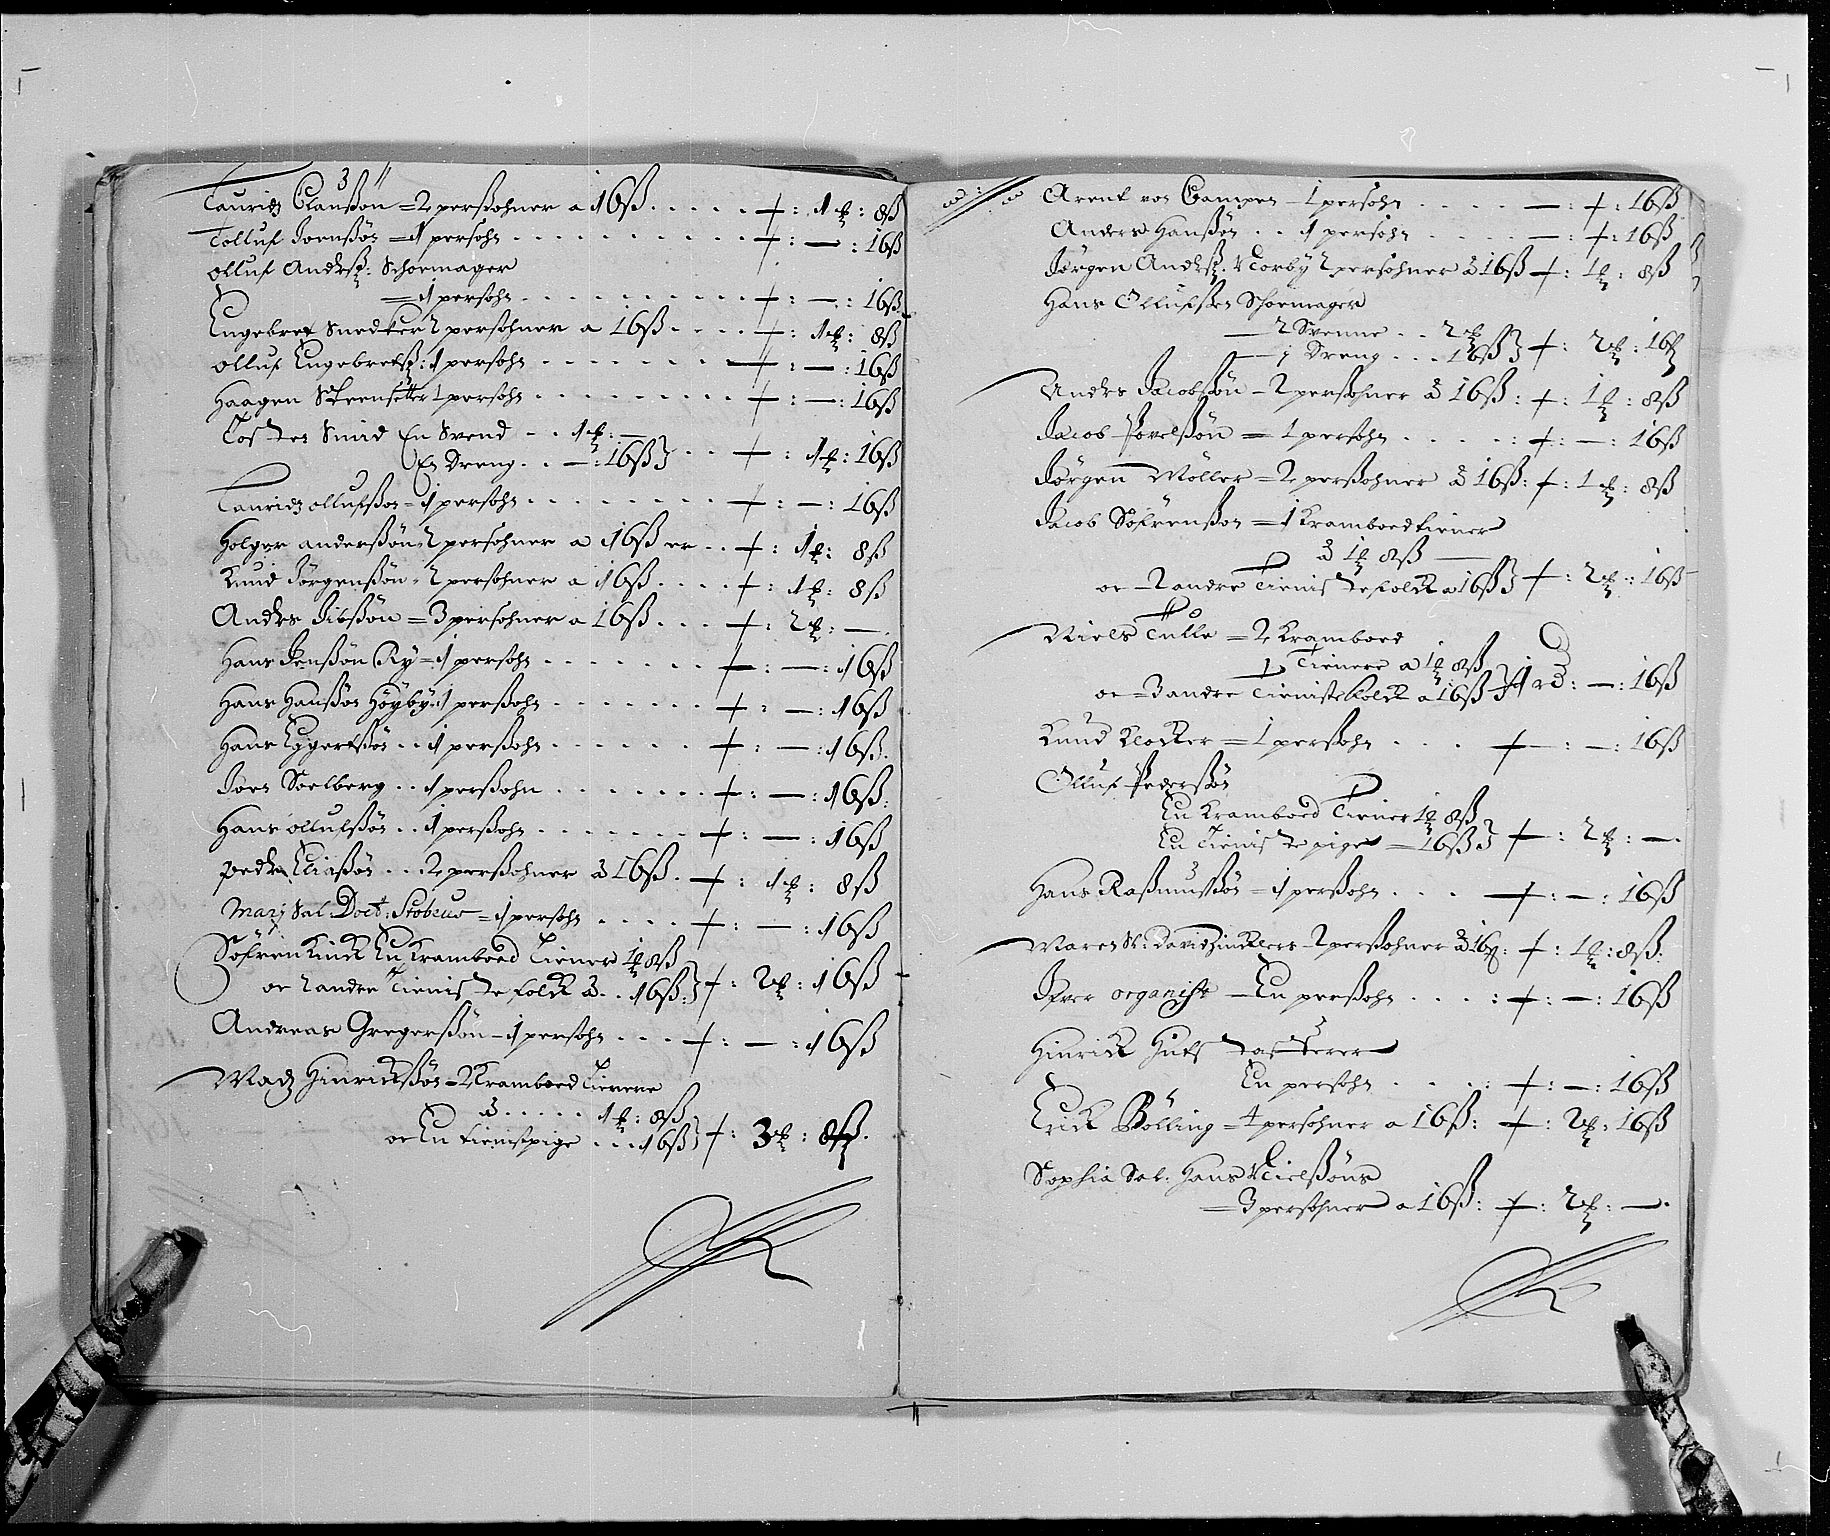 3
Lauridz Clausßøn = 2 perßohner a 16ß . . . . + : 1 : 8ß
Tolluf Joenßøn = 1 persohn . . . . + : — : 16ß
Olluf Andersß: Schoemager
= 1 persohn . . . . + : — : 16ß
Engebret Snedker 2 persohner a 16ß . . . . + : 1 : 8ß
Olluf Engebretsß: 1 persohn . . . . + : — : 16ß
Haagen Steensetter 1 persohn . . . . + : — : 16ß
Tosten Smid En Svend . . 1 : —
En Dreng . . — : 16ß } . . + : 1 : 16ß
Lauridz ollufßøn = 1 persohn . . . . + : — : 16ß
Holger anderßøn = 2 persohner a 16ß er . . + : 1 : 8ß
Knud Jørgenßøn = 2 persohner a 16ß . . . . + : 1 : 8ß
Anders Ibßøn = 3 persohner a 16ß . . . + : 2 : —
Hans Jenßøn Ry = 1 persohn . . . . + : — : 16ß
Hans Hanßøn Høyby = 1 perßohn . . . . + : — : 16ß
Hans Eggertßøn . . 1 perßohn . . . . + : — : 16ß
Joen Soelberg . . 1 perßohn . . . . + : — : 16ß
Hans ollufßøn . . 1 perßohn . . . . + : — : 16ß
peder Eliaßøn . . . 2 perßohner à 16ß . + : 1 : 8ß
Marj Sal Doct: Stobeus = 1 persohn . . . . + : — : 16ß
Søfren Kinck En Kramboed Tiener 1 8ß
oc 2 andre Tienistefolck à . . 16ß } + : 2 : 16ß
Andreas Gregerßøn = 1 persohn . . . + : — : 16ß
Madz Hinrichßøn = 2 Kramboed Tienere
à . . . . . 1 : 8ß
oc En tienistpige . . . 16ß } + : 3 : 8ß
3
Arent von Campen = 1 persohn . . . . — : + : 16ß
Anders Hanßøn . . 1 persohn . . . . — : + : 16ß
Jørgen Andersß: Norby 2 persohner à 16ß + : 1 : 8ß
Hans Ollufsen Schoemager
— 2 Svenne . . 2
— 1 Dreng . . . 16ß } + : 2 : 16ß
Anders Jacobßøn = 2 perßohner à 16ß : + : 1 : 8ß
Jacob Povelßøn = 1 persohn . . . . : + : — : 16ß
Jørgen Møller = 2 perßohner à 16ß : + : 1 : 8ß
Jacob Søfrenßøn = 1 Kramboedtiener
à 1 8ß —
oc 2 andre Tienistefolck a 16ß } + : 2 : 16ß
Niels Tulle = 2 Kramboed
Tienere a 1 8ß
oc 3 andre Tienistefolck a 16ß } : — : 16ß
Knud Klocker = 1 perßohn . . . + : — : 16ß
Olluf Pederßøn
En Kramboed Tiener 1 8ß
En Tienistepige = 16ß } + : 2 : —
Hans Raßmusßøn = 1 perßohn . . . + : — : 16ß
Maren Sl: David Sincklers 2 perßohner à 16ß : + : 1 : 8ß
Iver organist — En perßohn . . . . : + : — : 16ß
Hinrich
En persohn . . . . : + : — : 16ß
Erick Bølling = 4 persohner a 16ß : + : 2 : 16ß
Sophia Sal: Hans Nielßøns
= 3 persohner a 16ß : + : 2 : —